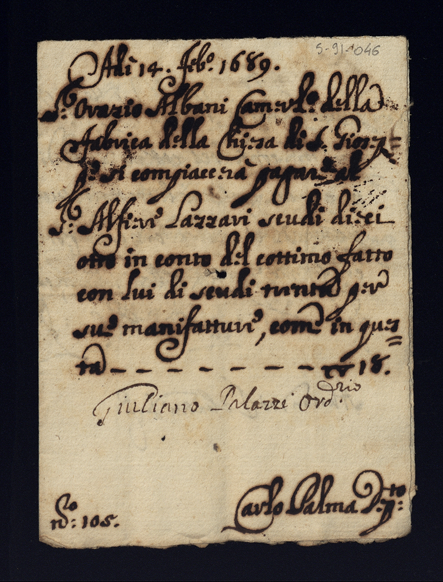 5-91-1046
Adi 14. Feb.º 1689.
S.r Orazio Albani Camerl.º della
fabrica della Chiesa di S. Giosep=
pe si compiacerà pagare al
S.r Alfier Lazzari scudi dieci
otto in conto del cottimo fatto
con lui di scudi trenta per
sue manifatture, come in ques=
ta - - - - - - - - - 18.
Giuliano Palazzi Ord.rio
N.ro: 105.
Carlo Palma Dep.to